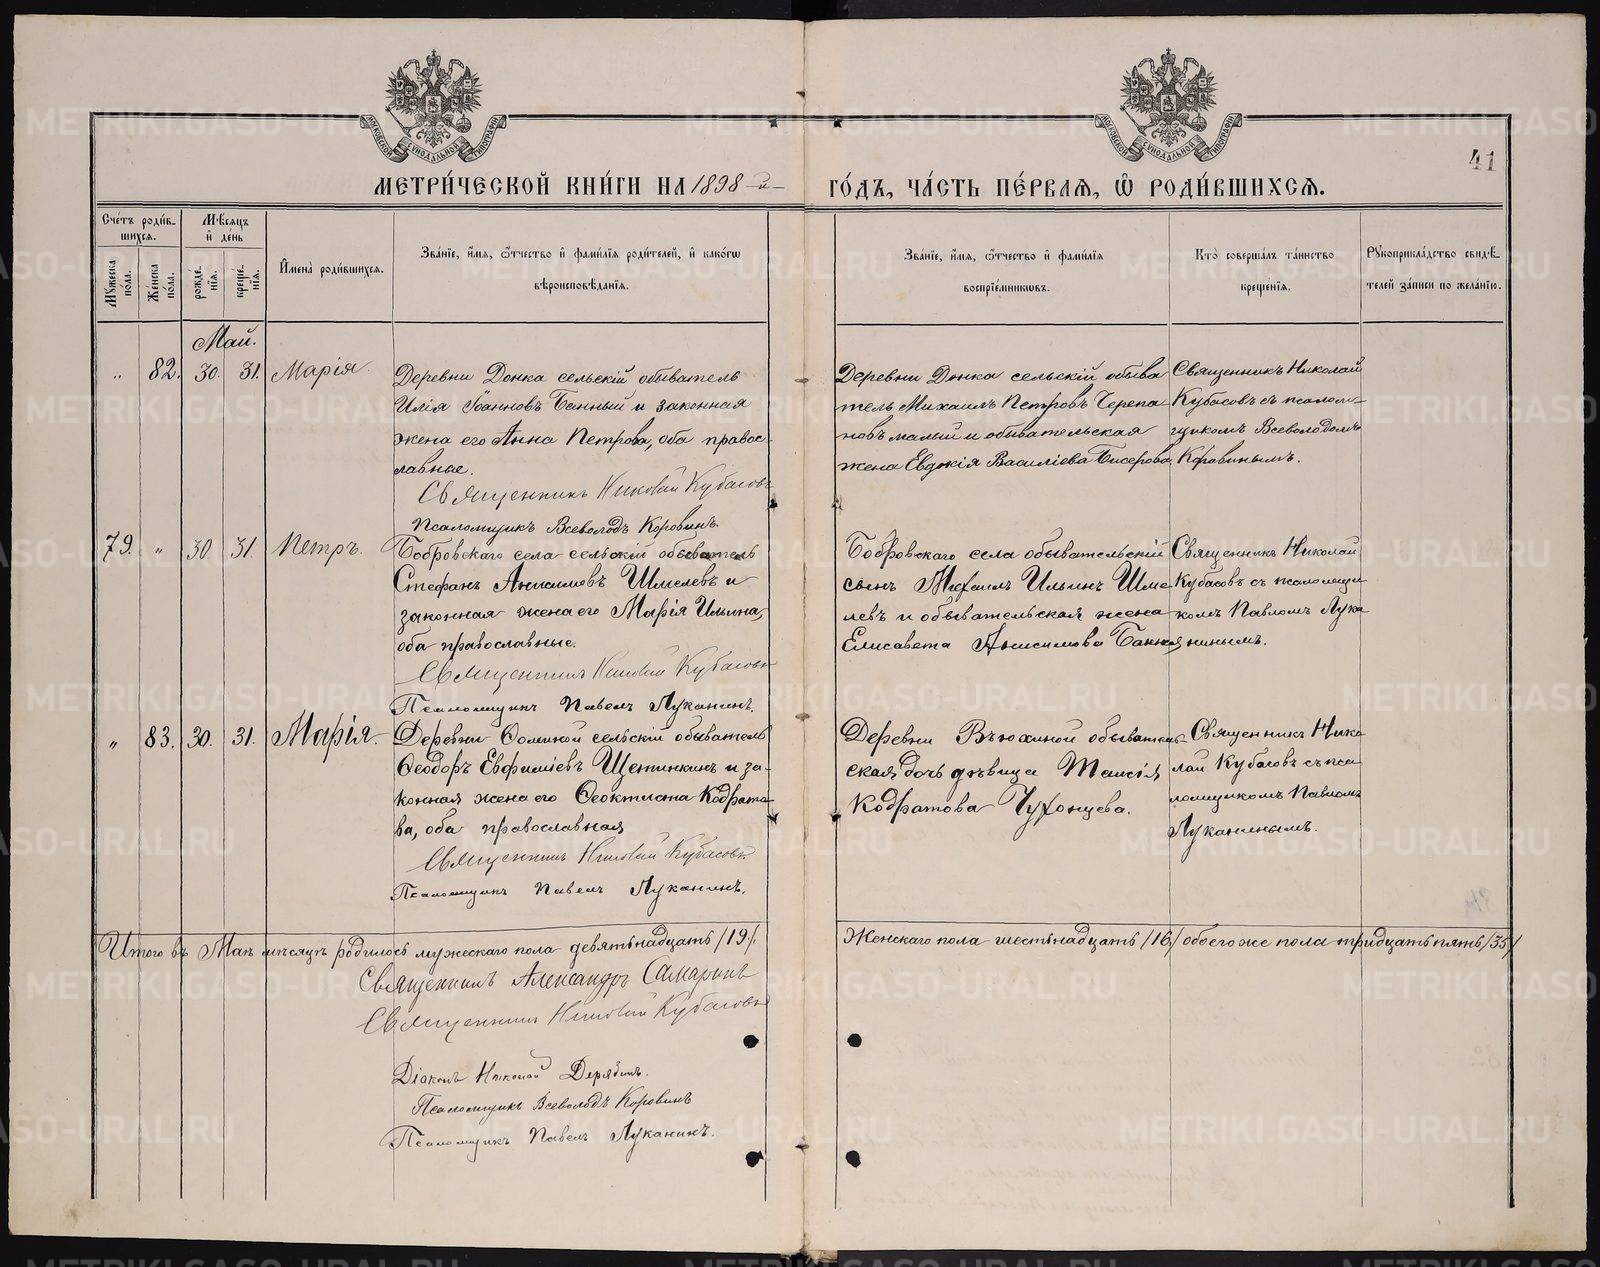 МОСКОВСКОЙ СѴНОДАЛЬНОЙ ТИПОГРАФІИ
МОСКОВСКОЙ СѴНОДАЛЬНОЙ ТИПОГРАФІИ
41
МЕТРИ́ЧЕСКОЙ КНИ́ГИ НА 1898-й- ГО́ДЪ, ЧА́СТЬ ПЕ́РВАЯ, Ѽ РОДИ́ВШИХСЯ.
Сче́тъ роди́вшихся.
Му́жеска по́ла.
Же́нска по́ла.
Мѣ́сяцъ и҆ де́нь
рожде́нїя.
креще́нїя.
И҆мена̀ роди́вшихся.
Зва́нїе, и҆́мя, ѻ҆́тчество и҆ фами́лїя роди́телей, и҆ како́гѡ
вѣроисповѣ́данїя.
Зва́нїе, и҆́мя, ѻ҆́тчество и҆ фами́лїя
воспрїе́мникѡвъ.
Кто̀ соверша́лъ та́инство
креще́нїя.
Рꙋкоприкла́дство свидѣ́телей за́писи по жела́нїю.
Май.
„ 82. 30. 31. Марія.
Деревни Донка сельскій обыватель
Илія Іоанновъ Банный и законная
жена его Анна Петрова, оба православные.
Священникъ Николай Кубасовъ
Псаломщикъ Всеволодъ Коровинъ.
Деревни Донка сельскій обыва
тель Михаилъ Петровъ Черепа
новъ малый и обывательская
жена Евдокія Василіева Бисерова.
Священникъ Николай
Кубасовъ съ псалом-
щикомъ Всеволодомъ
Коровинымъ.
79. „ 30 31. Петръ.
Бобровскаго села сельскій обыватель
Стефанъ Анисимовъ Шмелевъ и
законная жена его Марія Ильина,
оба православные.
Священникъ Николай Кубасовъ
Псаломщикъ Павелъ Луканинъ.
Бобровскаго села обывательскій
сынъ Михаилъ Ильинъ Шме
левъ и обывательская жена
Елисавета Анисимова
Священникъ Николай
Кубасовъ съ псаломщи
комъ Павломъ Лука
нинымъ.
„ 83. 30. 31. Марія.
Деревни Ѳоминой сельскій обыватель
Ѳеодоръ Евфиміевъ Щетинкинъ и за-
конная жена его Ѳеоктиста Кодрато
ва, оба православная
Священникъ Николай Кубасовъ
Псаломщикъ Павелъ Луканинъ.
Деревни Вьюхиной обыватель-
ская дочь дѣвица Таисія
Кодратова Чухонцева.
Священникъ Нико
лай Кубасовъ съ пса
ломщикомъ Павломъ
Луканинымъ.
Итого въ Маѣ мѣсяцѣ родилось мужескаго пола девятьнадцать /19/. Женскаго пола шестьнадцать /16/ обоего же пола тридцать пять /35/
Священникъ Александръ Самаринъ
Священникъ Николай Кубасовъ
Діаконъ Николай Дерябинъ.
Псаломщикъ Всеволодъ Коровинъ
Псаломщикъ Павелъ Луканинъ.
METRIKI.GASO-URAL.RU